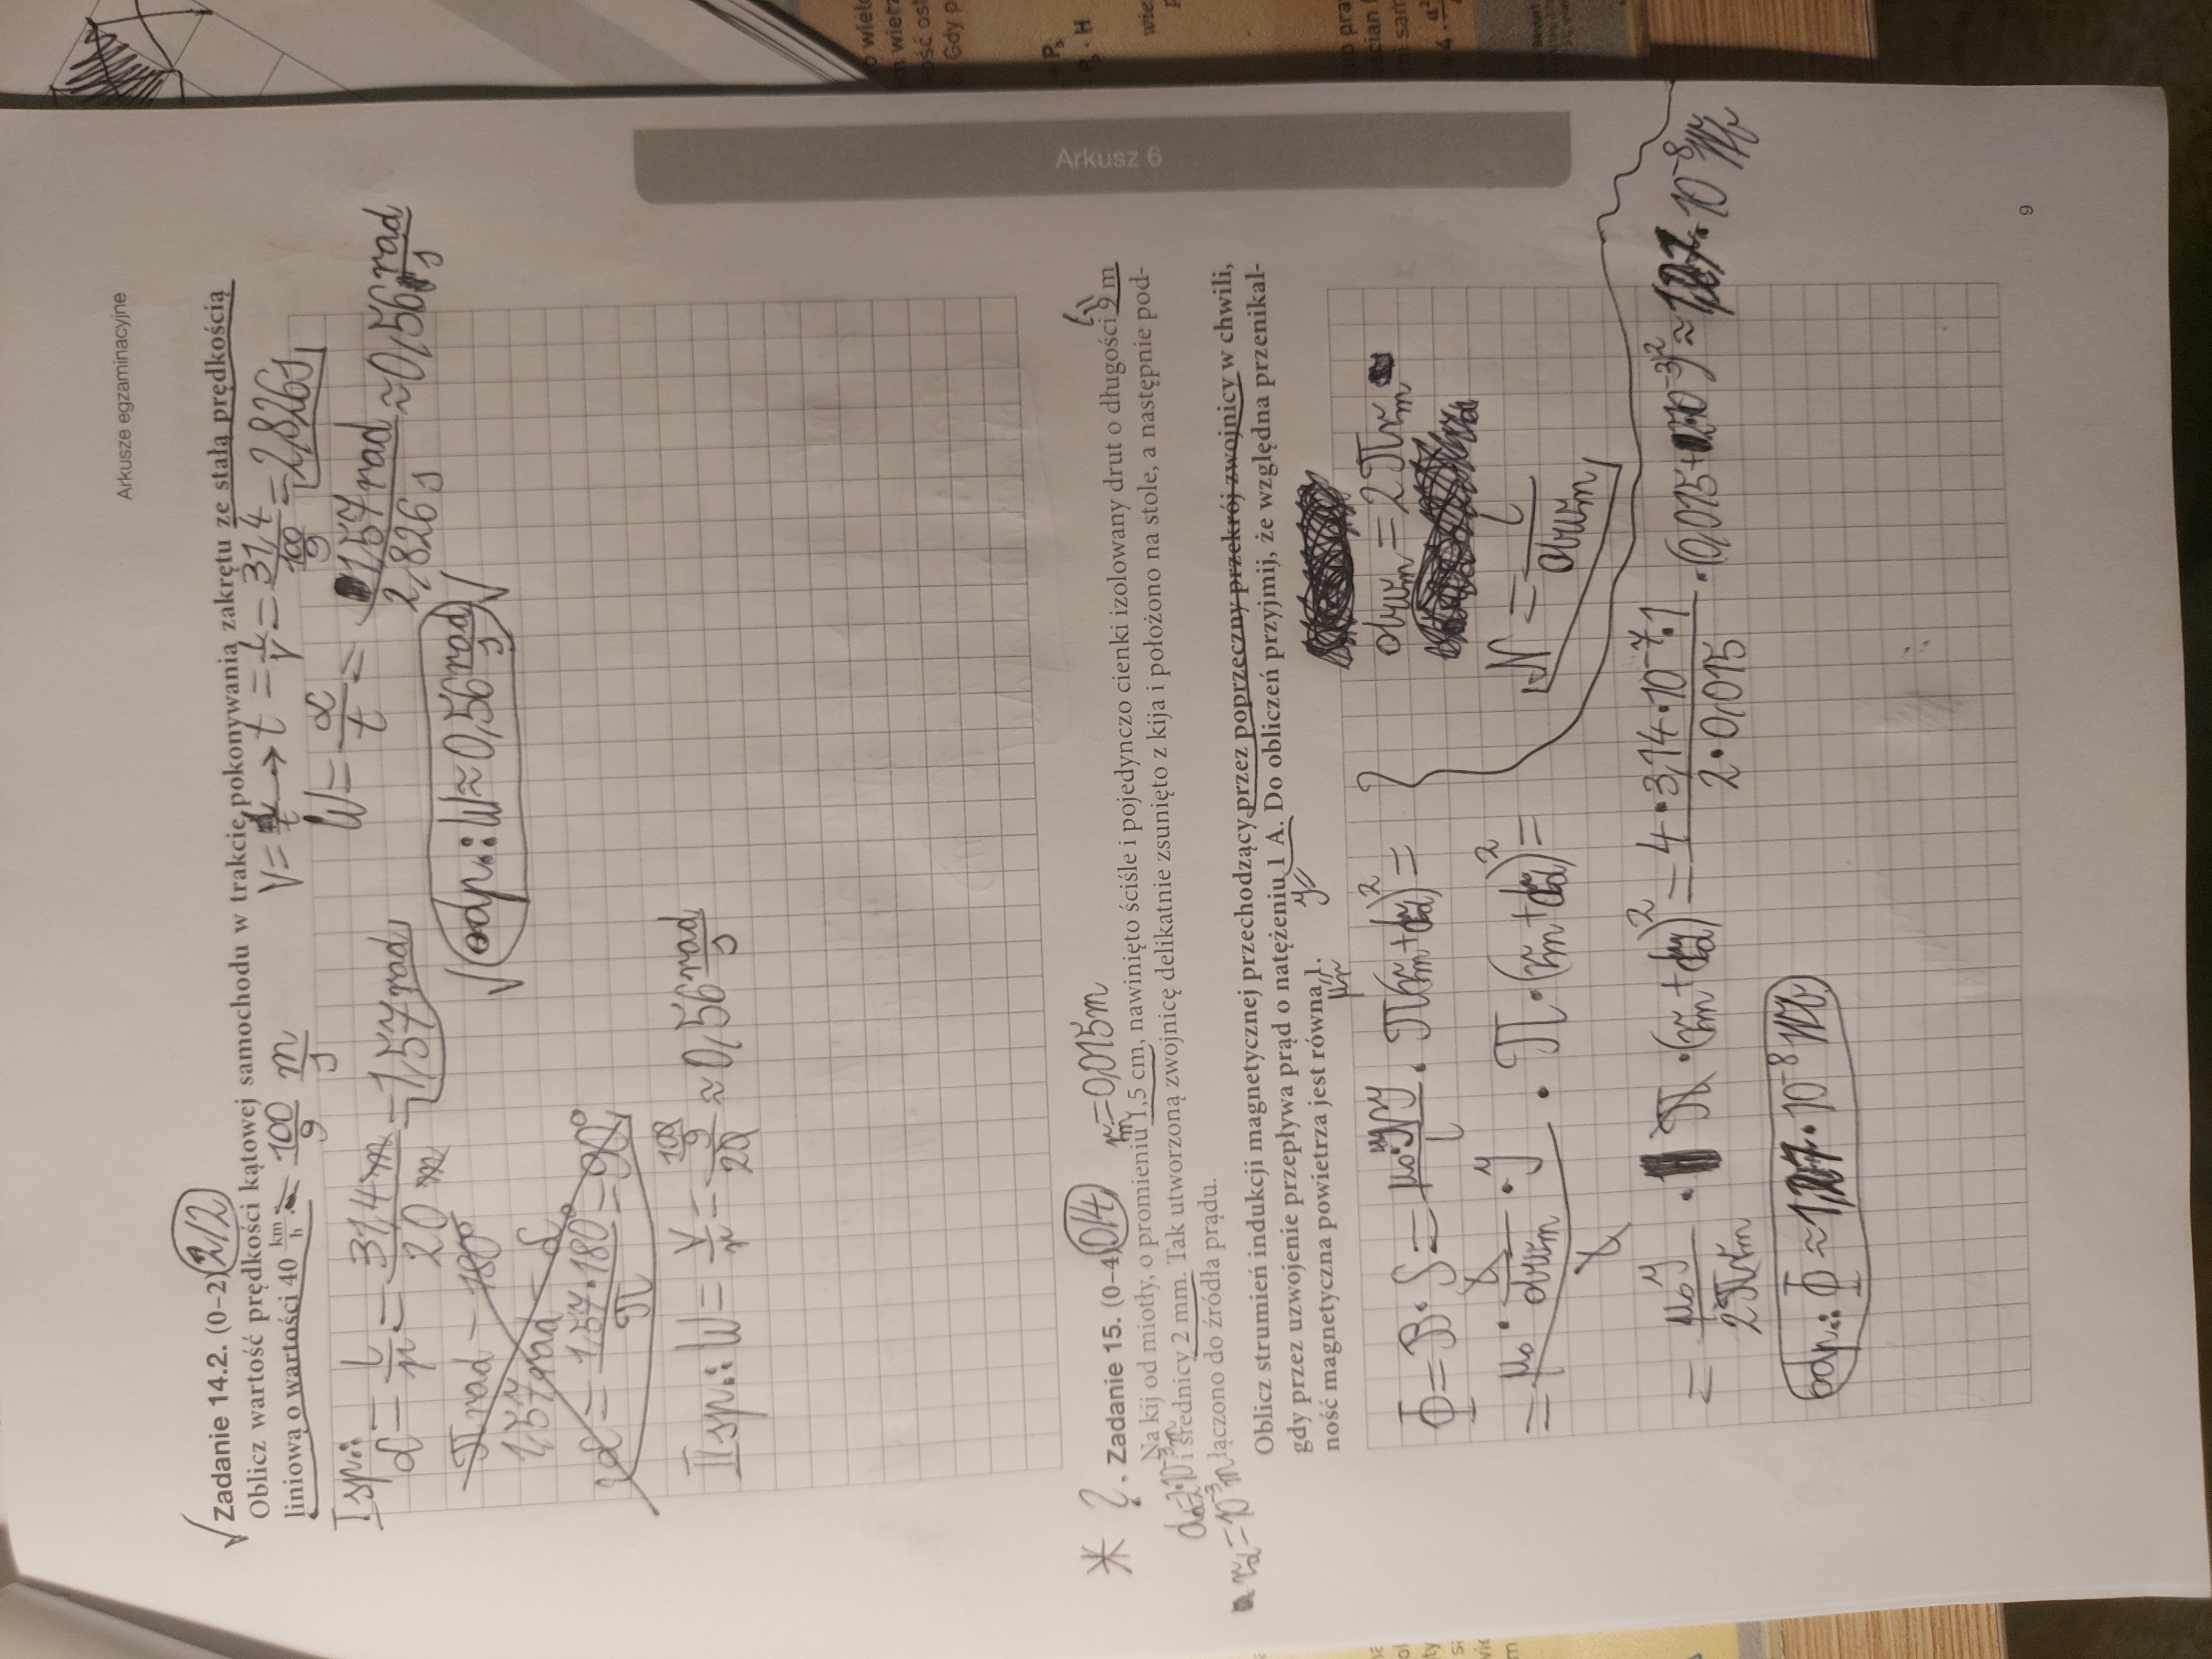 Arkusze egzaminacyjne
√ Zadanie 14.2. (0-2) 2/2
Oblicz wartość prędkości kątowej samochodu w trakcie pokonywania zakrętu ze stałą prędkością
liniową o wartości 40 km/h = 100/9 m/s
V = L/t → t = L/V = 31,4 / (100/9) = 2,826 s
I sp.:
α = L/r = 31,4 m / 20 m = 1,57 rad
W = α/t = 1,57 rad / 2,826 s ≈ 0,56 rad/s
π rad – 180°
1,57 rad – α
α = 1,57 · 180° / π = 90°
√ odp.: W ≈ 0,56 rad/s √
II sp.: W = V/r = (100/9) / 20 ≈ 0,56 rad/s
* ? . Zadanie 15. (0-4) 0/4
r m = 0,015 m
Na kij od miotły, o promieniu 1,5 cm, nawinięto ściśle i pojedynczo cienki izolowany drut o długości 9 m
i średnicy 2 mm. Tak utworzoną zwojnicę delikatnie zsunięto z kija i położono na stole, a następnie pod-
łączono do źródła prądu.
d = 2·10⁻³ m
r d = 10⁻³ m
Oblicz strumień indukcji magnetycznej przechodzący przez poprzeczny przekrój zwojnicy w chwili,
gdy przez uzwojenie przepływa prąd o natężeniu 1 A. Do obliczeń przyjmij, że względna przenikal-
ność magnetyczna powietrza jest równa 1.
Φ = B · S = · π(r m + r d)² =
obw m = 2πr m
= μ₀ · L / obw m · y / L · π · (r m + r d)² =
N = L / obw m
= μ₀ y / 2πr m · π · (r m + r d)² = 4 · 3,14 · 10⁻⁷ · 1 / 2 · 0,015 · (0,015 + 10⁻³)² ≈ 1,07 · 10⁻⁸ Wb
odp.: Φ ≈ · 10⁻⁸ Wb
Arkusz 6
9